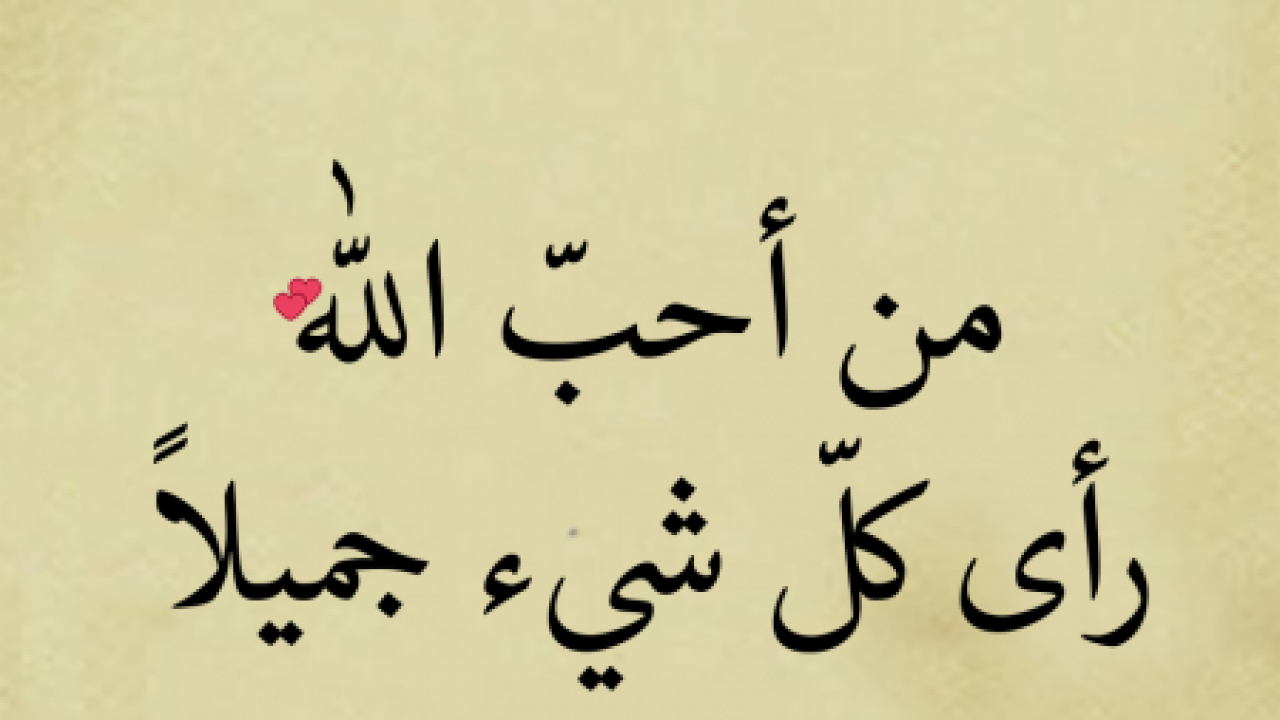 من أحبّ اللّٰه💕
رأى كلّ شيء جميلاً